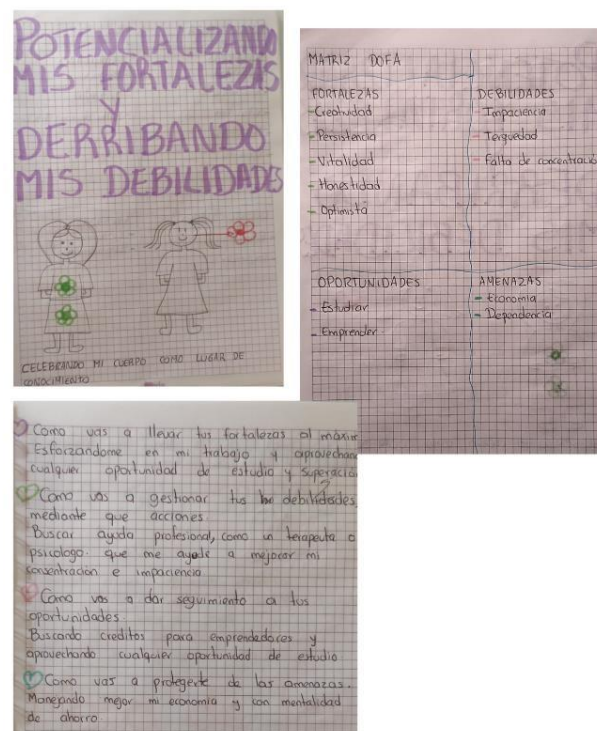 POTENCIALIZANDO
MIS FORTALEZAS
Y
DERRIBANDO
MIS DEBILIDADES
CELEBRANDO MI CUERPO COMO LUGAR DE
CONOCIMIENTO
MATRIZ DOFA
FORTALEZAS
- Creatividad
- Persistencia
- Vitalidad
- Honestidad
- Optimista
DEBILIDADES
- Impaciencia
- Terquedad
- Falta de concentració
OPORTUNIDADES
- Estudiar
- Emprender
AMENAZAS
- Economia
- Dependencia
Como vas a llevar tus fortalezas al máxim
Esforzandome en mi trabajo y aprovechan
cualquier oportunidad de estudio y superació
Como vas a gestionar tus debilidades,
mediante que acciones ?
Buscar ayuda profesional, como un terapeuta o
psicologo. que me ayude a mejorar mi
consentracion e impaciencia
Como vas a dar seguimiento a tus
oportunidades
Buscando creditos para emprendedores y
aprovechando cualquier oportunidad de estudio
Como vas a protegerte de las amenazas.
Manejando mejor mi economia y con mentalidad
de ahorro.